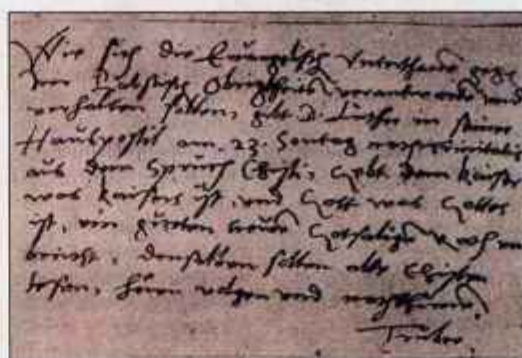 Wie sich die Euangelisch Vnterthanen gege
der Bäpstisch Obrigkheit verantworten vnd
verhalten sollen, gibt D: Luther in seiner
Hauspostil am 23. Sontag
aus dem Spruch Christi, Gebt dem Kaiser
was Kaisers ist, vnd Gott was Gottes
ist, ein gueten
bericht, denselben sollen alle Christen
lesen, hören vnd
Truber.